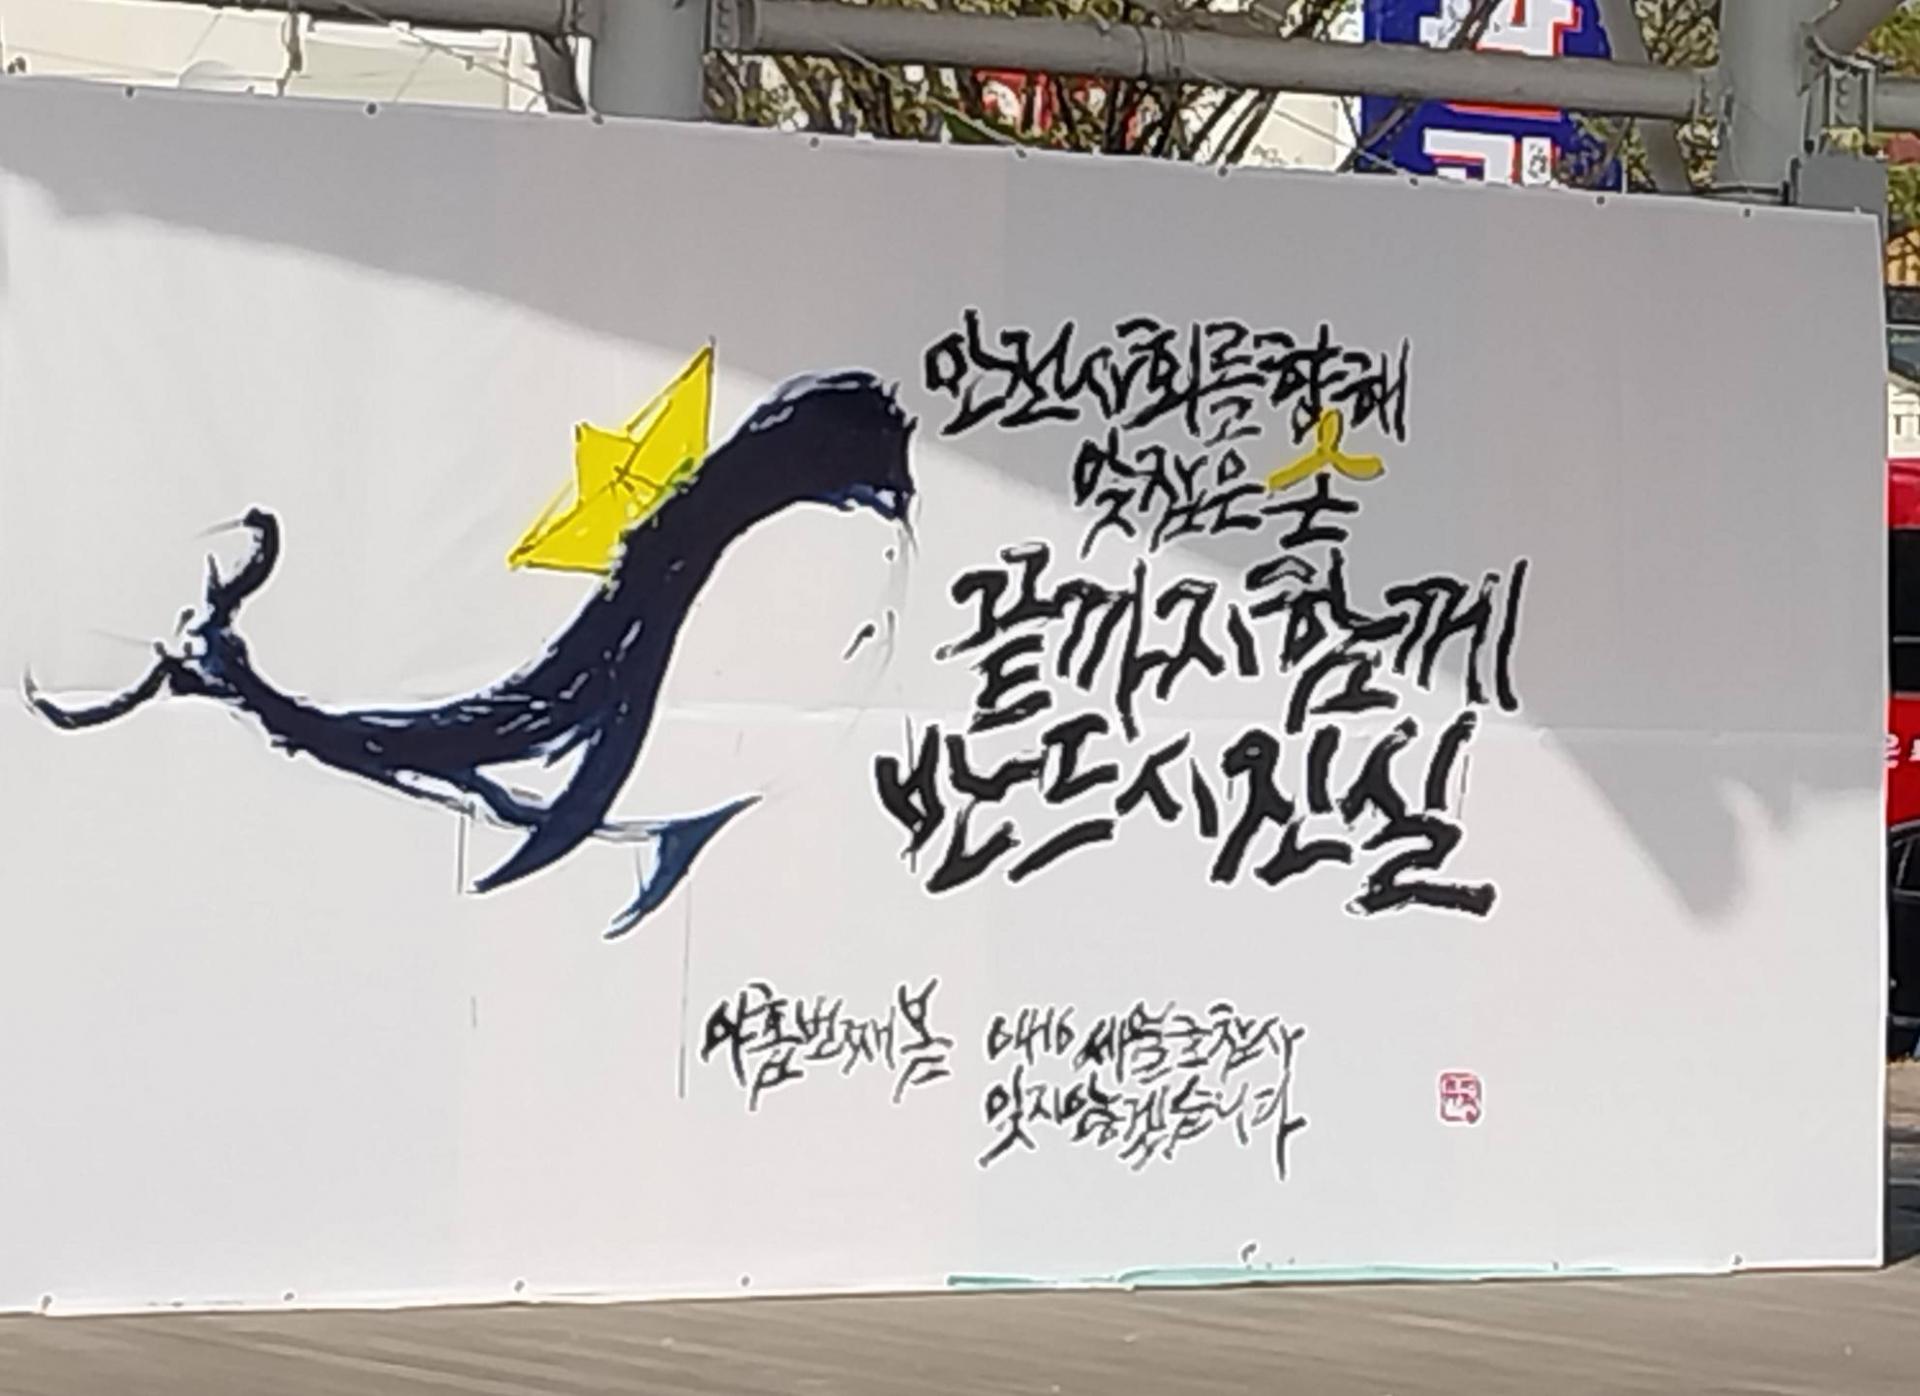 안전사회를향해
맞잡은손
끝까지함께
반드시진실
아홉번째봄
0416세월호참사
잊지않겠습니다